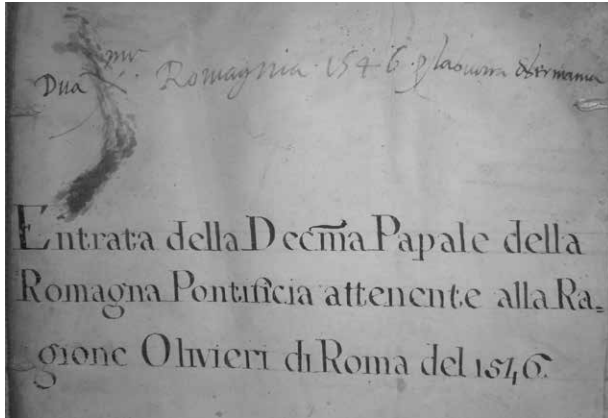 Dua
Romagnia · 1546 · p la guerra d germania
Entrata della Decm̃a Papale della
Romagna Pontificia attenente alla Ra=
gione Olivieri di Roma del 1546.